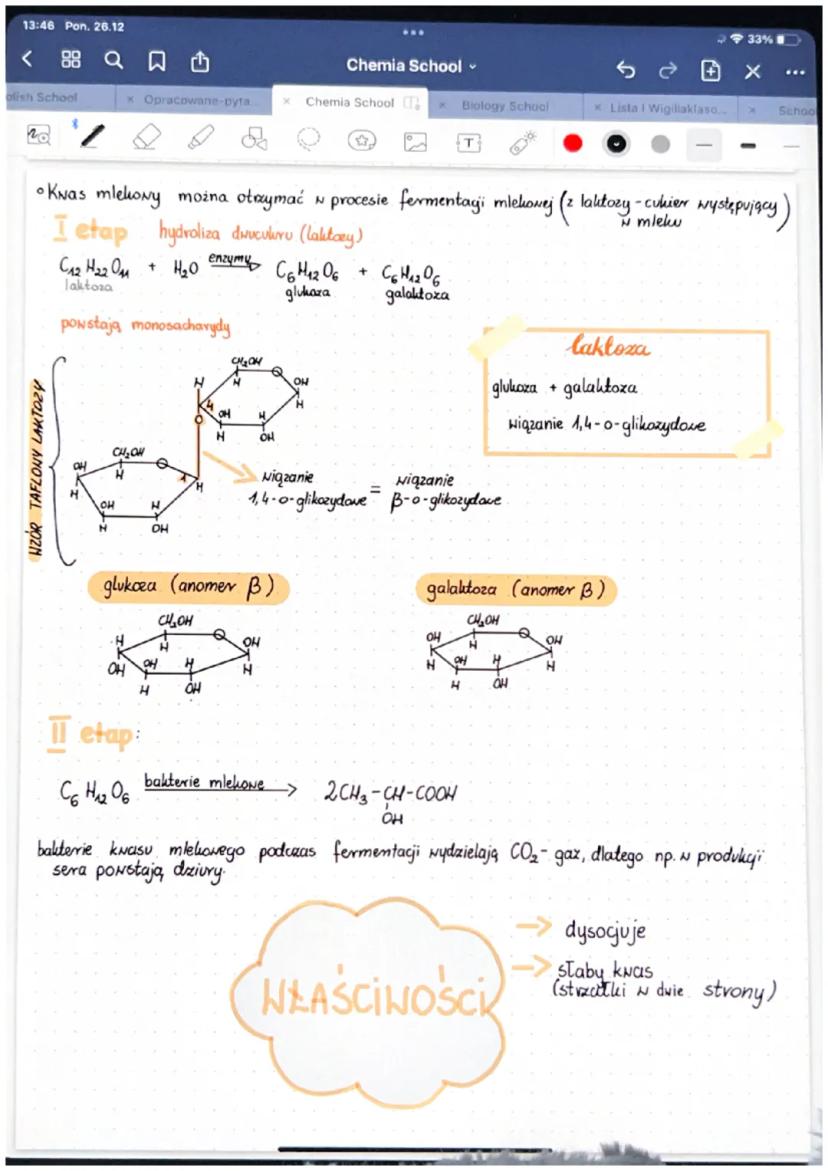 13:46 Pon. 26.12
33%
Chemia School
olish School
Opracowane-pyta...
Chemia School
Biology School
Lista I Wigiliaklaso...
School
Kwas mlekowy można otrzymać w procesie fermentacji mlekowej (z laktozy - cukier występujący w mleku)
I etap hydroliza dwucukru (laktozy)
C12H22O11 + H2O enzymy → C6H12O6 + C6H12O6
laktoza glukoza galaktoza
powstają monosacharydy
laktoza
glukoza + galaktoza
wiązanie 1,4-o-glikozydowe
WZÓR TAFLOWY LAKTOZY
CH2OH
H H OH
4 H
O OH H
H OH
CH2OH
OH H 1
H H
OH H
H OH
wiązanie 1,4-o-glikozydowe = wiązanie β-o-glikozydowe
glukoza (anomer β)
galaktoza (anomer β)
CH2OH
H H OH
OH OH H H
H OH
CH2OH
OH H OH
H OH H H
H OH
II etap:
C6H12O6 bakterie mlekowe → 2CH3-CH-COOH
OH
bakterie kwasu mlekowego podczas fermentacji wydzielają CO2 - gaz, dlatego np. w produkcji
sera powstają dziury.
WŁAŚCIWOŚCI
→ dysocjuje
→ słaby kwas
(strzałki w dwie strony)